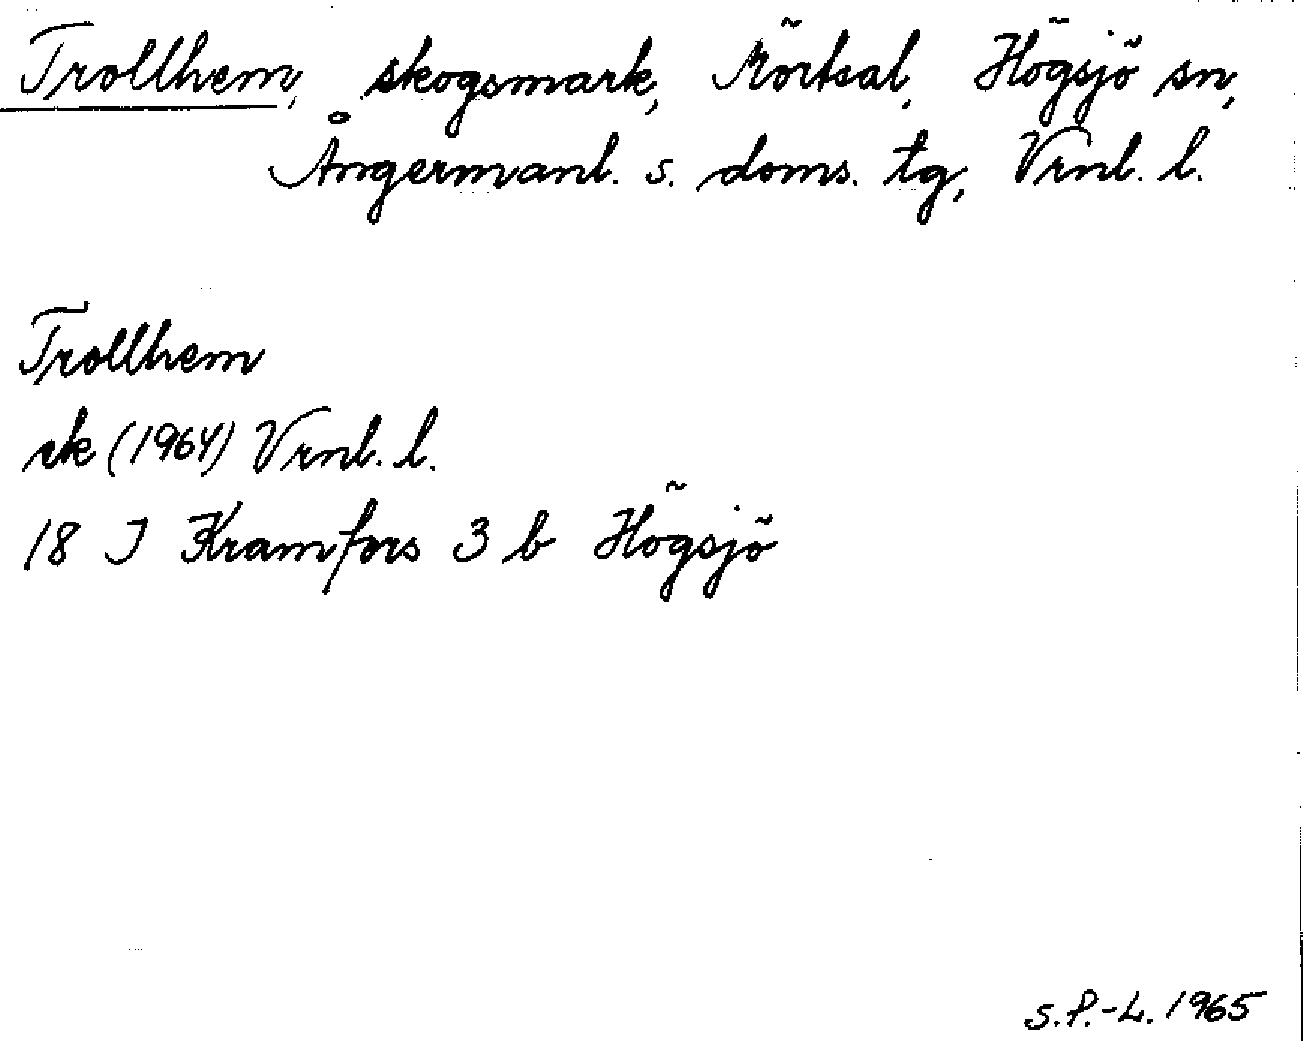 Trollhem, skogsmark, Rörtsal, Högsjö sn,
Ångermanl. s. doms. tg, Vrnl. l.
Trollhem
ek (1964) Vrnl. l.
18 I Kramfors 3 b Högsjö
S.P.-L. 1965